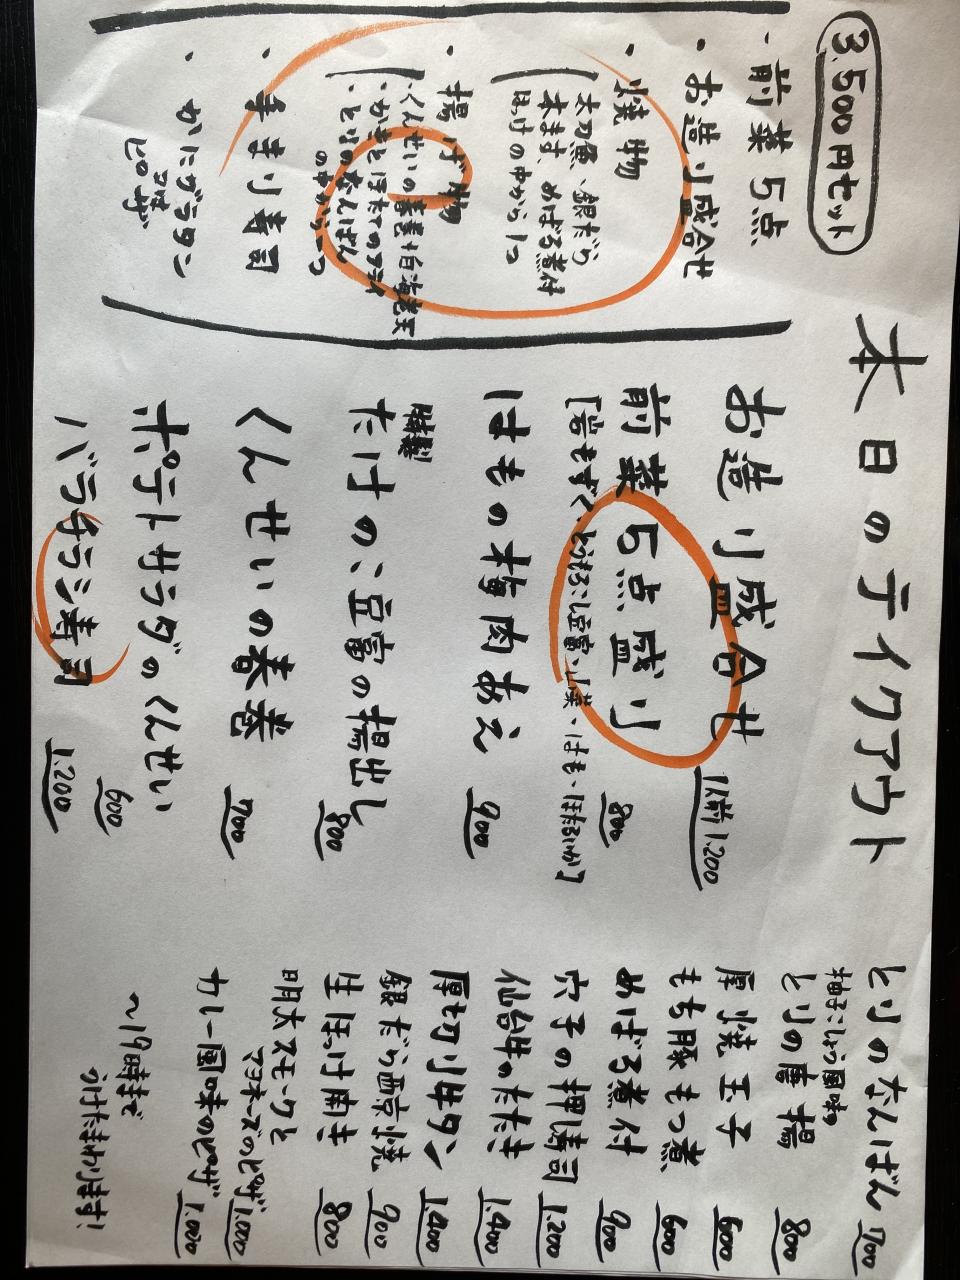 本日のテイクアウト
3,500円セット
・前菜5点
・お造り盛合せ
・焼物
太刀魚、銀だら
本ます、めばる煮付
ほっけの中から1つ
・揚げ物
・くんせいの春巻
・かきとほたてのフライ
・とりのなんばん
の中から1つ
・幸まり寿司
・かにグラタン
又は
ピザ
お造り盛合せ 1人前1.200
前菜5点盛り 800
[岩もずく、とうもろこし豆富、山菜、はも、ほたるいか]
はもの梅肉あえ 900
特製
たけのこ豆富の揚出し 800
くんせいの春巻 700
ポテトサラダのくんせい 600
バラチラシ寿司 1.200
とりのなんばん 700
柚子こしょう風味
とりの唐揚 800
厚焼玉子 600
もち豚もつ煮 600
めばる煮付 900
穴子の押寿司 1.200
仙台牛のたたき 1.400
厚切り牛タン 1.400
銀だら西京焼 900
生ほっけ開き 800
明太スモークと
マヨネーズのピザ 1.000
カレー風味のピザ 1.000
〜19時まで
うけたまわります!